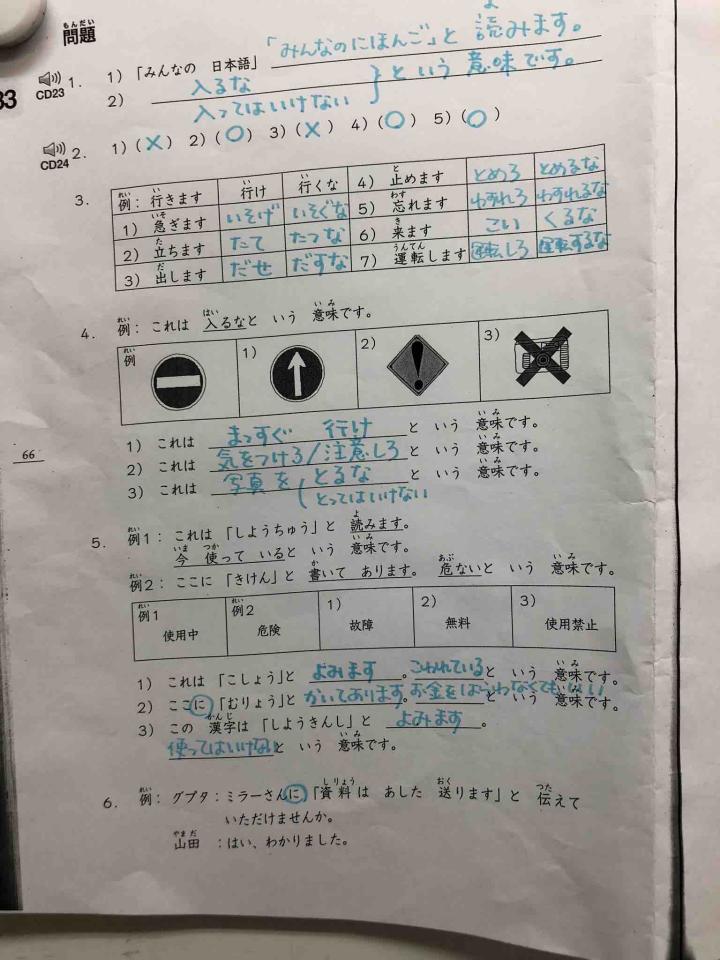 問題
33
CD23 1. 1) 「みんなの 日本語」「みんなのにほんご」と 読みます。
2) 入るな
入ってはいけない } という 意味です。
CD24 2. 1) (×) 2) (○) 3) (×) 4) (○) 5) (○)
3. 例: 行きます 行け 行くな 4) 止めます とめろ とめるな
1) 急ぎます いそげ いそぐな 5) 忘れます わすれろ わすれるな
2) 立ちます たて たつな 6) 来ます こい くるな
3) 出します だせ だすな 7) 運転します 運転しろ 運転するな
4. 例: これは 入るなと いう 意味です。
例 1) 2) 3)
1) これは まっすぐ 行けと いう 意味です。
66
2) これは 気をつけろ/注意しろと いう 意味です。
3) これは 写真を とるなと いう 意味です。
とってはいけない
5. 例1: これは 「しようちゅう」と 読みます。
今 使って いると いう 意味です。
例2: ここに 「きけん」と 書いて あります。 危ないと いう 意味です。
例1 例2 1) 2) 3)
使用中 危険 故障 無料 使用禁止
1) これは 「こしょう」と よみます。こわれていると いう 意味です。
2) ここに 「むりょう」と かいてあります。お金をはらわなくてもいいと いう 意味です。
3) この 漢字は 「しようきんし」と よみます。
使ってはいけないと いう 意味です。
6. 例: グプタ:ミラーさんに 「資料は あした 送ります」と 伝えて
いただけませんか。
山田 :はい、わかりました。